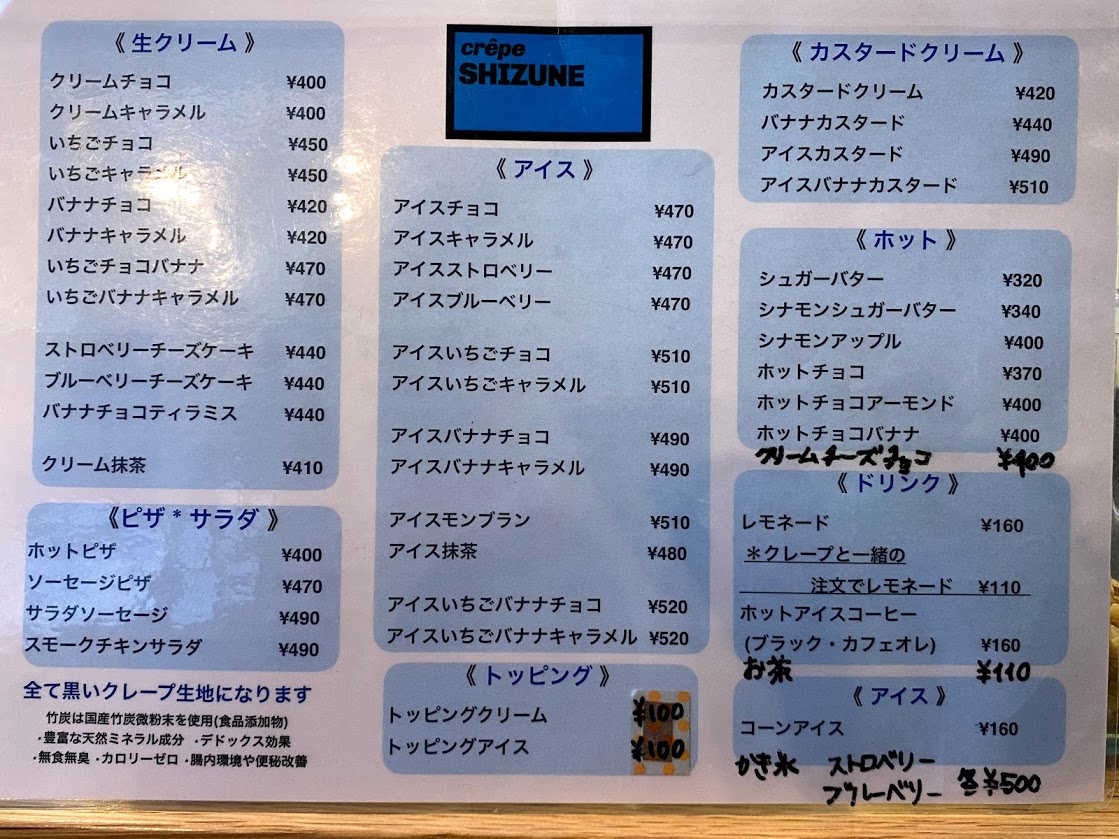 《 生クリーム 》
クリームチョコ ¥400
クリームキャラメル ¥400
いちごチョコ ¥450
いちごキャラメル ¥450
バナナチョコ ¥420
バナナキャラメル ¥420
いちごチョコバナナ ¥470
いちごバナナキャラメル ¥470
ストロベリーチーズケーキ ¥440
ブルーベリーチーズケーキ ¥440
バナナチョコティラミス ¥440
クリーム抹茶 ¥410
《ピザ * サラダ 》
ホットピザ ¥400
ソーセージピザ ¥470
サラダソーセージ ¥490
スモークチキンサラダ ¥490
全て黒いクレープ生地になります
竹炭は国産竹炭微粉末を使用(食品添加物)
・豊富な天然ミネラル成分 ・デドックス効果
・無食無臭 ・カロリーゼロ ・腸内環境や便秘改善
crêpe
SHIZUNE
《 アイス 》
アイスチョコ ¥470
アイスキャラメル ¥470
アイスストロベリー ¥470
アイスブルーベリー ¥470
アイスいちごチョコ ¥510
アイスいちごキャラメル ¥510
アイスバナナチョコ ¥490
アイスバナナキャラメル ¥490
アイスモンブラン ¥510
アイス抹茶 ¥480
アイスいちごバナナチョコ ¥520
アイスいちごバナナキャラメル ¥520
《 トッピング 》
トッピングクリーム ¥100
トッピングアイス ¥100
《 カスタードクリーム 》
カスタードクリーム ¥420
バナナカスタード ¥440
アイスカスタード ¥490
アイスバナナカスタード ¥510
《 ホット 》
シュガーバター ¥320
シナモンシュガーバター ¥340
シナモンアップル ¥400
ホットチョコ ¥370
ホットチョコアーモンド ¥400
ホットチョコバナナ ¥400
クリームチーズチョコ ¥400
《 ドリンク 》
レモネード ¥160
＊クレープと一緒の
注文でレモネード ¥110
ホットアイスコーヒー
(ブラック・カフェオレ) ¥160
お茶 ¥110
《 アイス 》
コーンアイス ¥160
かき氷 ストロベリー
ブルーベリー 各¥500